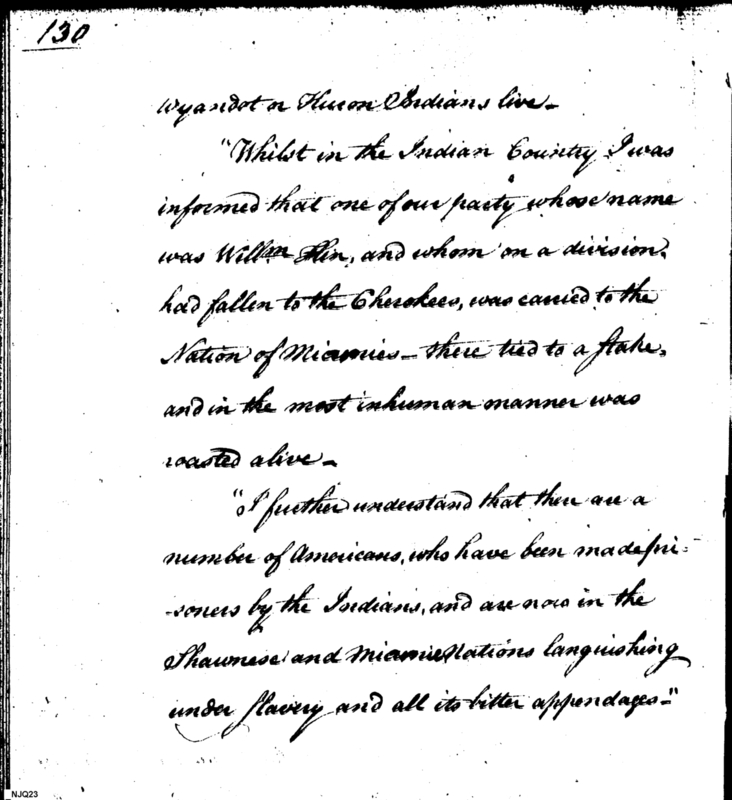 130
wyandot or Huron Indians live-
"Whilst in the Indian Country I was
informed that one of our party whose name
was Willm Flin, and whom on a division,
had fallen to the Cherokees, was carried to the
Nation of Miamies - there tied to a stake,
and in the most inhuman manner was
roasted alive-
"I further understand that there are a
number of Americans, who have been made pri=
=soners by the Indians, and are now in the
Shawnese and Miamie Nations languishing
under slavery and all its bitter appendages-"
NJQ23